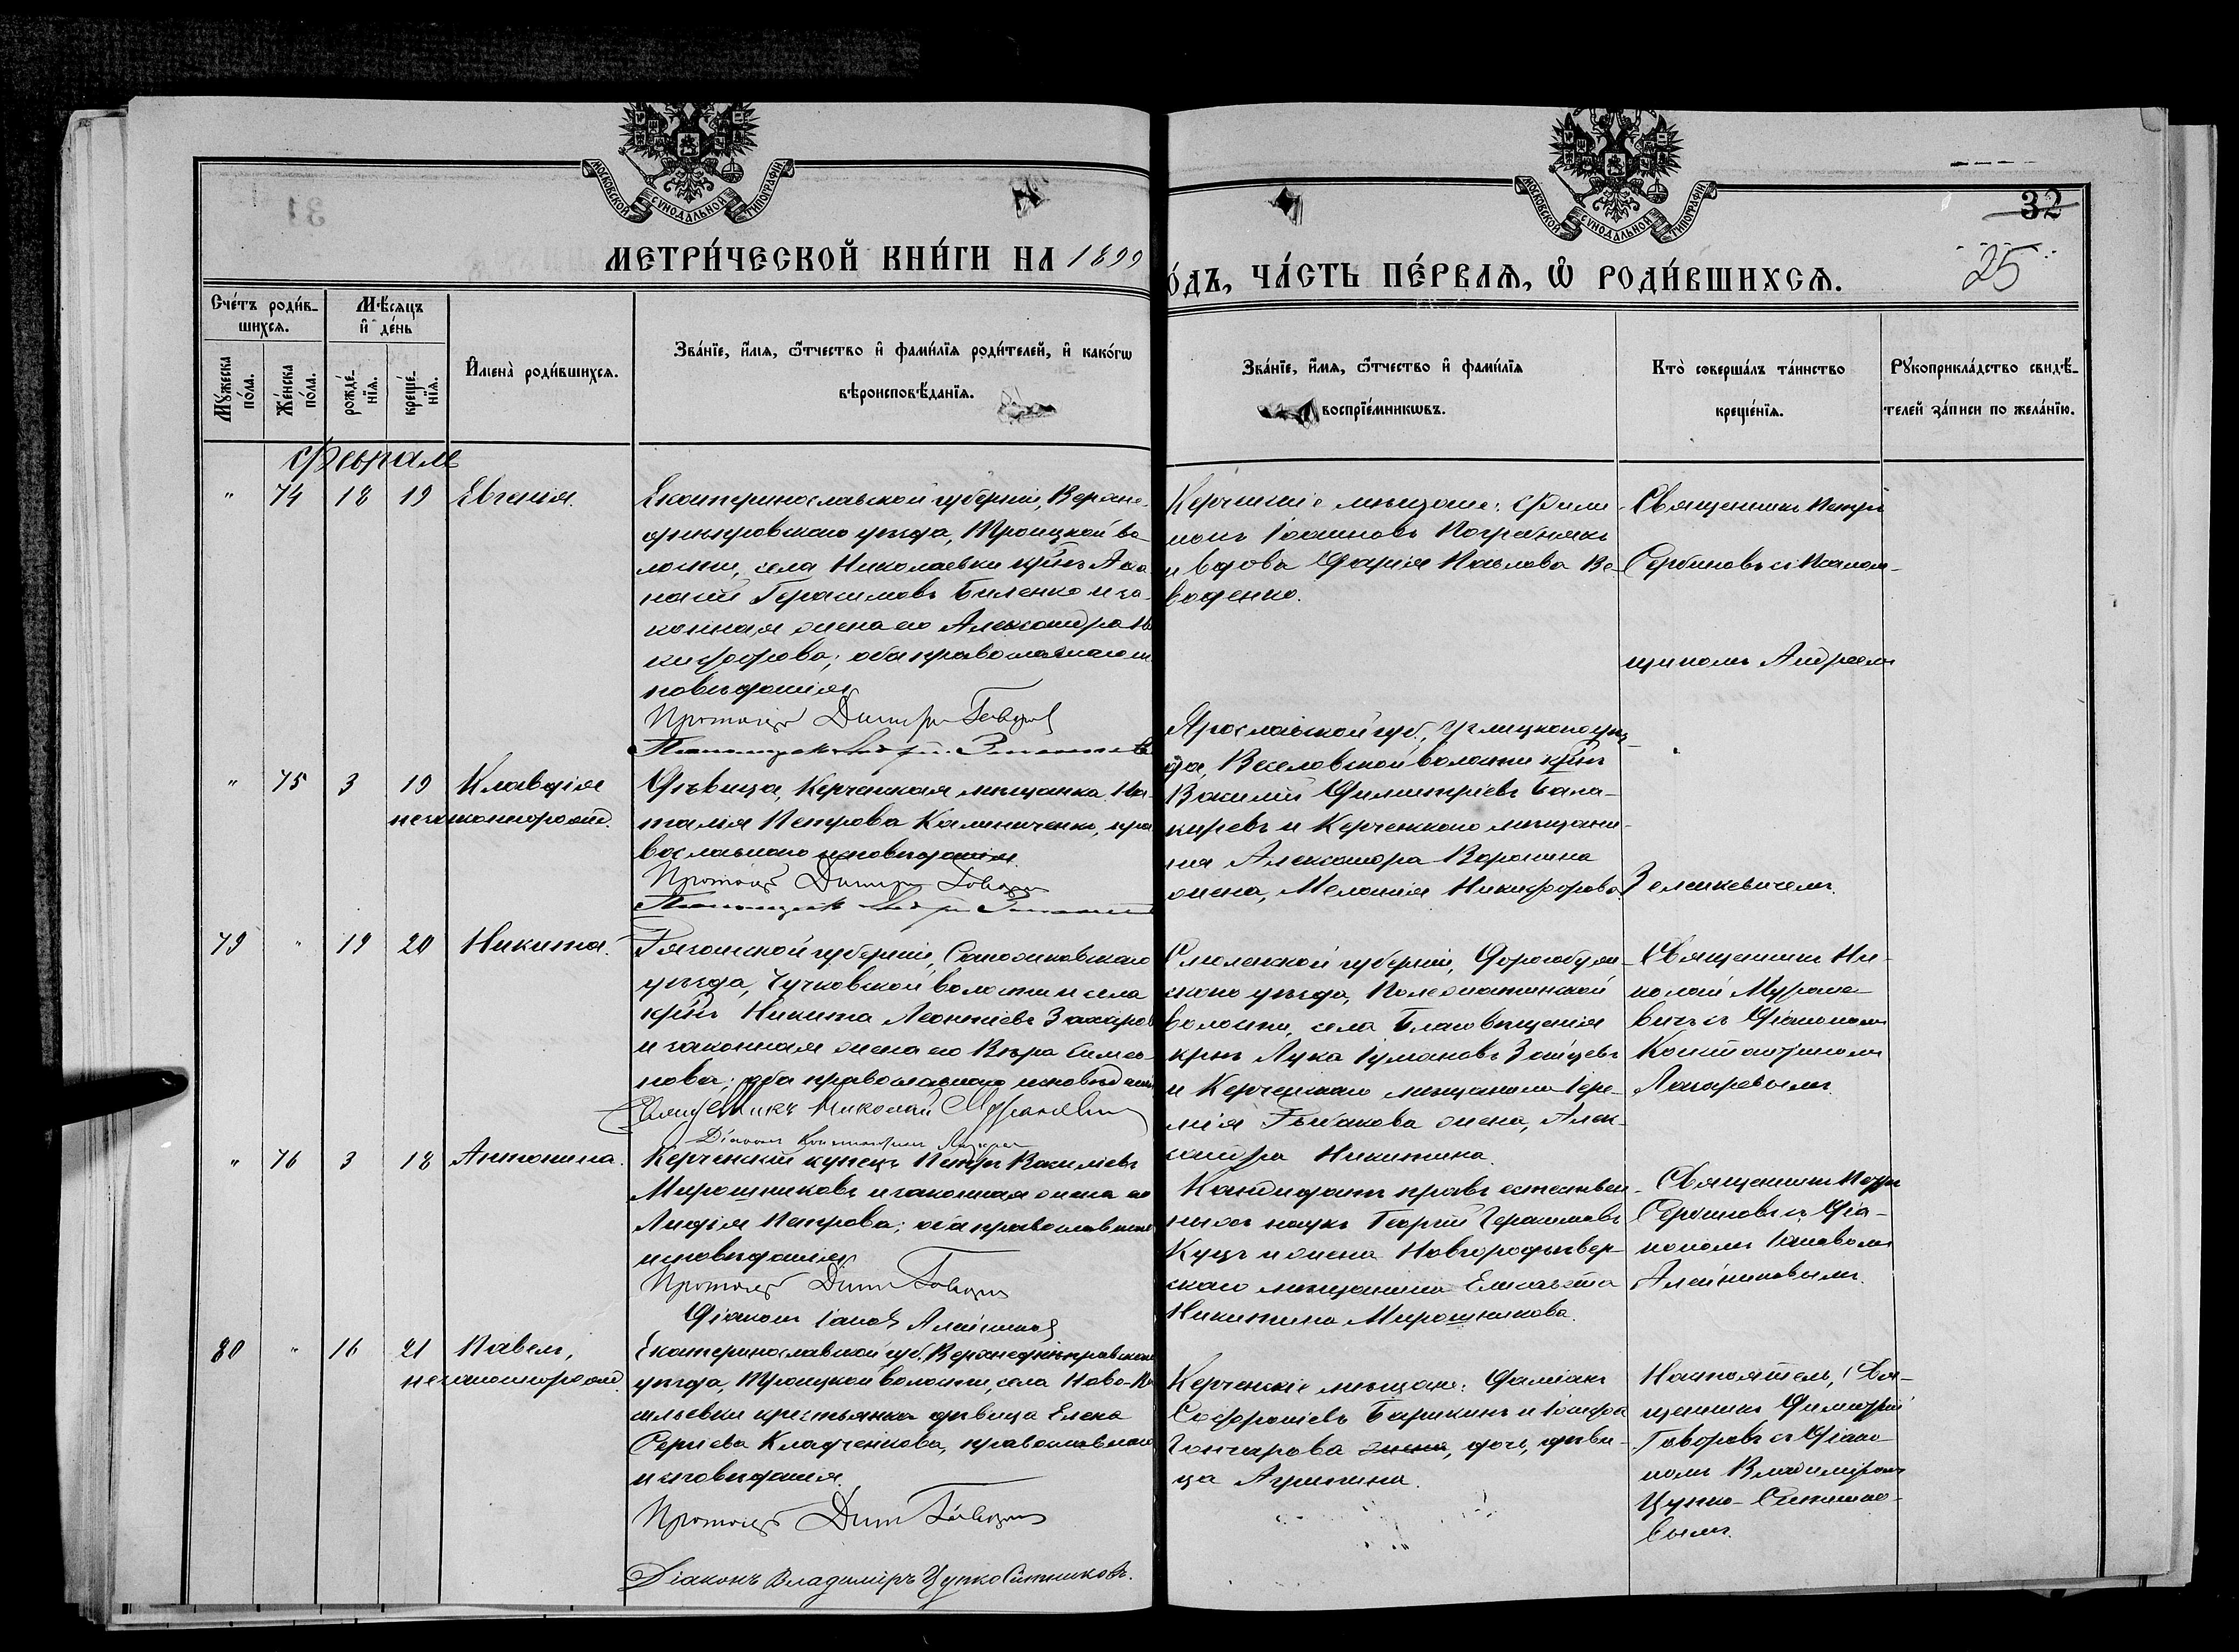 МОСКОВСКОЙ СѴНОДАЛЬНОЙ ТИПОГРАФІИ
МОСКОВСКОЙ СѴНОДАЛЬНОЙ ТИПОГРАФІИ
32
25
МЕТРИ́ЧЕСКОЙ КНИ́ГИ НА 1899
о́дъ, ЧА́СТЬ ПЕ́РВАѦ, Ѽ РОДИ́ВШИХСѦ.
Сче́тъ роди́в-
шихсѧ.
Мѣ́сяцъ
и҆ де́нь
Мꙋ́жеска
по́ла.
Же́нска
по́ла.
рожде́-
нїѧ.
креще́-
нїѧ.
И҆мена̀ роди́вшихсѧ.
Зва́нїе, и҆́мѧ, ѻ҆́тчество и҆ фами́лїѧ роди́телей, и҆ како́гѡ
вѣроисповѣ́данїѧ.
Зва́нїе, и҆́мѧ, ѻ҆́тчество и҆ фами́лїѧ
воспрїе́мникѡвъ.
Кто̀ соверша́лъ та́инство
креще́нїѧ.
Рꙋкоприкла́дство свидѣ́-
телей за́писи по жела́нїю.
Февраль
" 74 18 19 Евгенія.
Екатеринославской губерніи, Верхне-
днѣпровскаго уѣзда, Троицкой во
лости, села Николаевки крнъ Аѳа
насій Герасимовъ Биленко и за-
конная жена его Александра Ни
кифорова; оба православнаго ис
повѣданія
Протоіер Димитр Говоров
Керченскіе мѣщане: Фили-
монъ Іоанновъ Пограничн
и вдова Дарія Павлова Во-
воденко.
Священникъ Петръ
Сербиновъ съ Псалом-
щикомъ Андреемъ
Зелинкевичемъ.
" 75 3 19 Клавдія
незаконнорожд.
Дѣвица, Керченская мѣщанка На-
талія Петрова Калиниченко, пра
вославнаго исповѣданія.
Протоіер Димитр Говоров
Ярославской губ., Углицкаго уѣз-
да, Веселовской волости крнъ
Василій Димитріевъ Бала-
киревъ и Керченскаго мѣщани-
на Александра Воронина
жена, Меланія Никифорова.
79 " 19 20 Никита.
Рязанской губерніи, Сапожковскаго
уѣзда, Чучковской волости и села
крнъ Никита Леонтіевъ Захаров
и законная жена его Вѣра Симео-
нова; оба православнаго исповѣдан
Священникъ Николай Мураневич
Діаконъ Константинъ Лазарев
Смоленской губерніи, Дорогобуж-
скаго уѣзда,
волости, села Благовѣщенія
крнъ Лука Зайцевъ
и Керченскаго мѣщанина Іере-
мія Рыбакова жена, Алек-
сандра Никитина.
Священникъ Ни-
колай Мурано-
вичъ съ Діакономъ
Константиномъ
Лазаревымъ.
" 76 3 18 Антонина.
Керченскій купецъ Петръ Василіевъ
Мирошниковъ и законная жена его
Лидія Петрова; оба православнаго
исповѣданія
Протоіер Дим Говоров
Діаконъ Іаков Алейников
Кандидатъ правъ естествен-
ныхъ наукъ Георгій Герасимовъ
Куцъ и жена Новгородсѣвер-
скаго мѣщанина Елисавета
Никитина Мирошникова.
Священникъ Петръ
Сербиновъ съ Діа-
кономъ Іаковомъ
Алейниковымъ.
80 " 16 21 Павелъ,
незаконнорожд.
Екатеринославской губ. Верхнеднѣпровскаго
уѣзда, Троицкой волости, села Ново-Ва
сильевки крестьянка дѣвица Елена
Сергіева Кладченкова, православнаго
исповѣданія.
Протоіер Дим Говоров
Діаконъ Владиміръ Цупко Ситниковъ.
Керченскіе мѣщане: Даміанъ
Софроніевъ Барышкинъ и Іосифа
Гончарова жена, дочь, дѣви-
ца Агрипина.
Настоятель, Свя-
щенникъ Димитрій
Говоровъ съ Діако-
номъ Владиміромъ
Цупко-Ситнико-
вымъ.